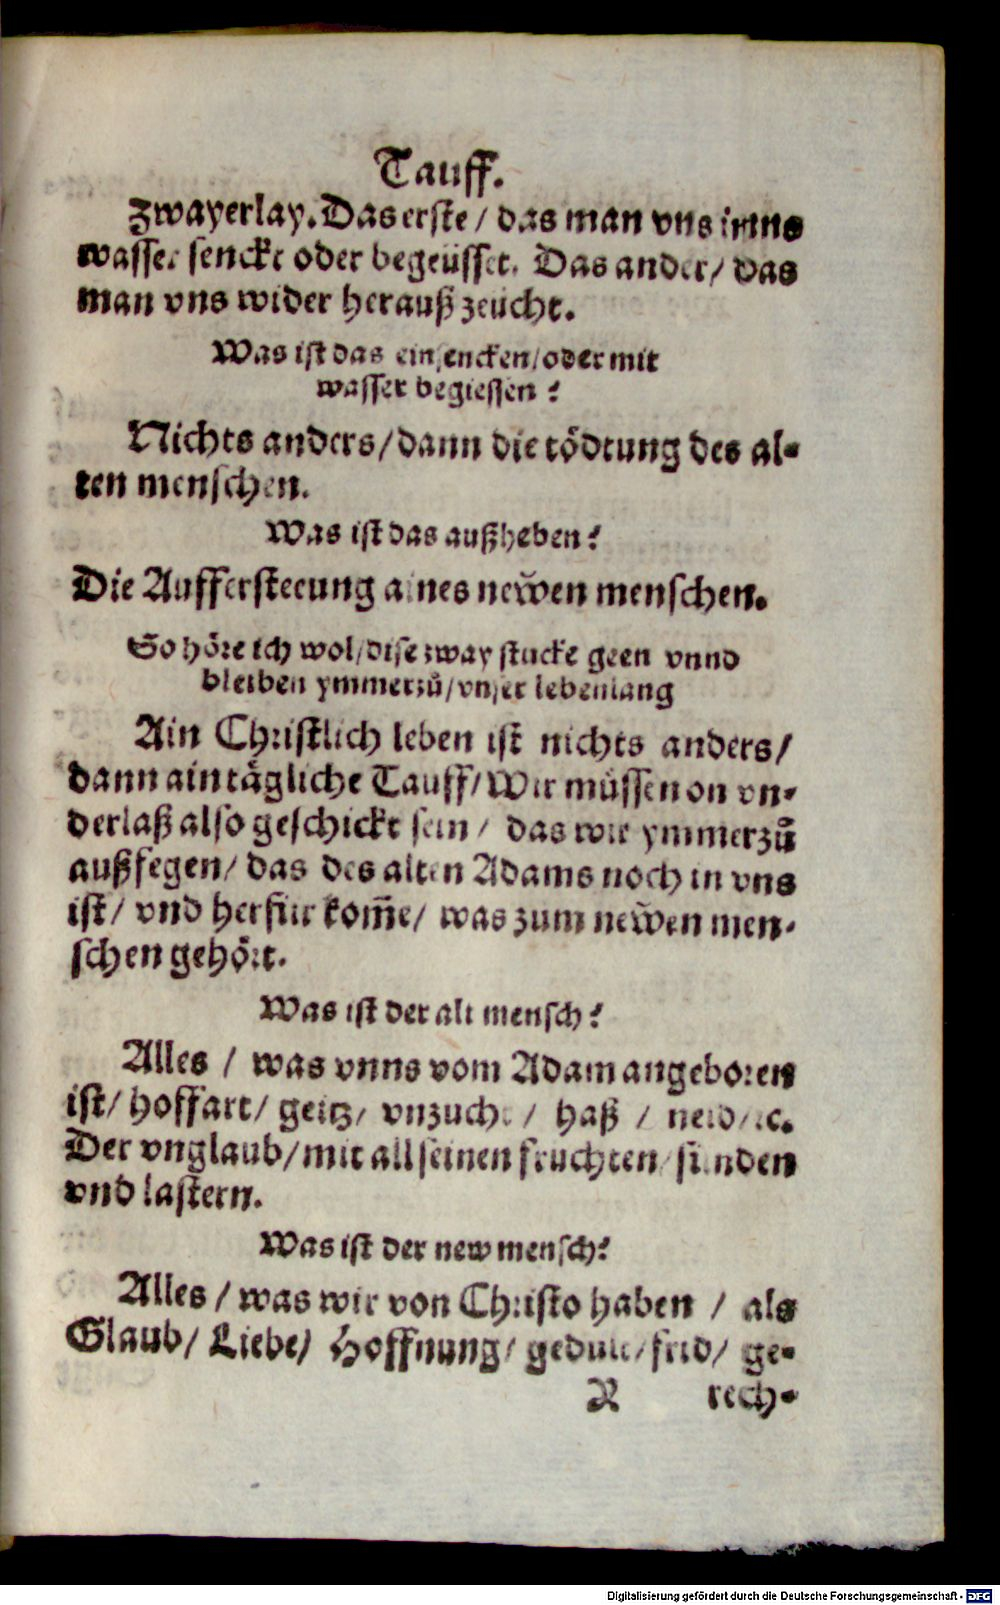 Tauff.
Zwayerlay. Das erste / das man vns inns
wasser senckt oder begeüsset. Das ander / das
man vns wider herauß zeücht.
Was ist das einsencken / oder mit
wasser begiessen?
Nichts anders / dann die tödtung des al-
ten menschen.
Was ist das außheben?
Die Auffersteeung aines newen menschen.
So höre ich wol / dise zway stucke geen vnnd
bleiben ymmerzů / vnser lebenlang
Ain Christlich leben ist nichts anders /
dann ain tägliche Tauff / Wir müssen on vn-
derlaß also geschickt sein / das wir ymmerzů
außfegen / das des alten Adams noch in vns
ist / vnd herfür kom̃e / was zum newen men-
schen gehört.
Was ist der alt mensch?
Alles / was vnns vom Adam angeboren
ist / hoffart / geitz / vnzucht / haß / neid / ꝛc.
Der vnglaub / mit all seinen fruchten / sünden
vnd lastern.
Was ist der new mensch?
Alles / was wir von Christo haben / als
Glaub / Liebe / Hoffnung / gedult / frid / ge-
R rech-
Digitalisierung gefördert durch die Deutsche Forschungsgemeinschaft - DFG